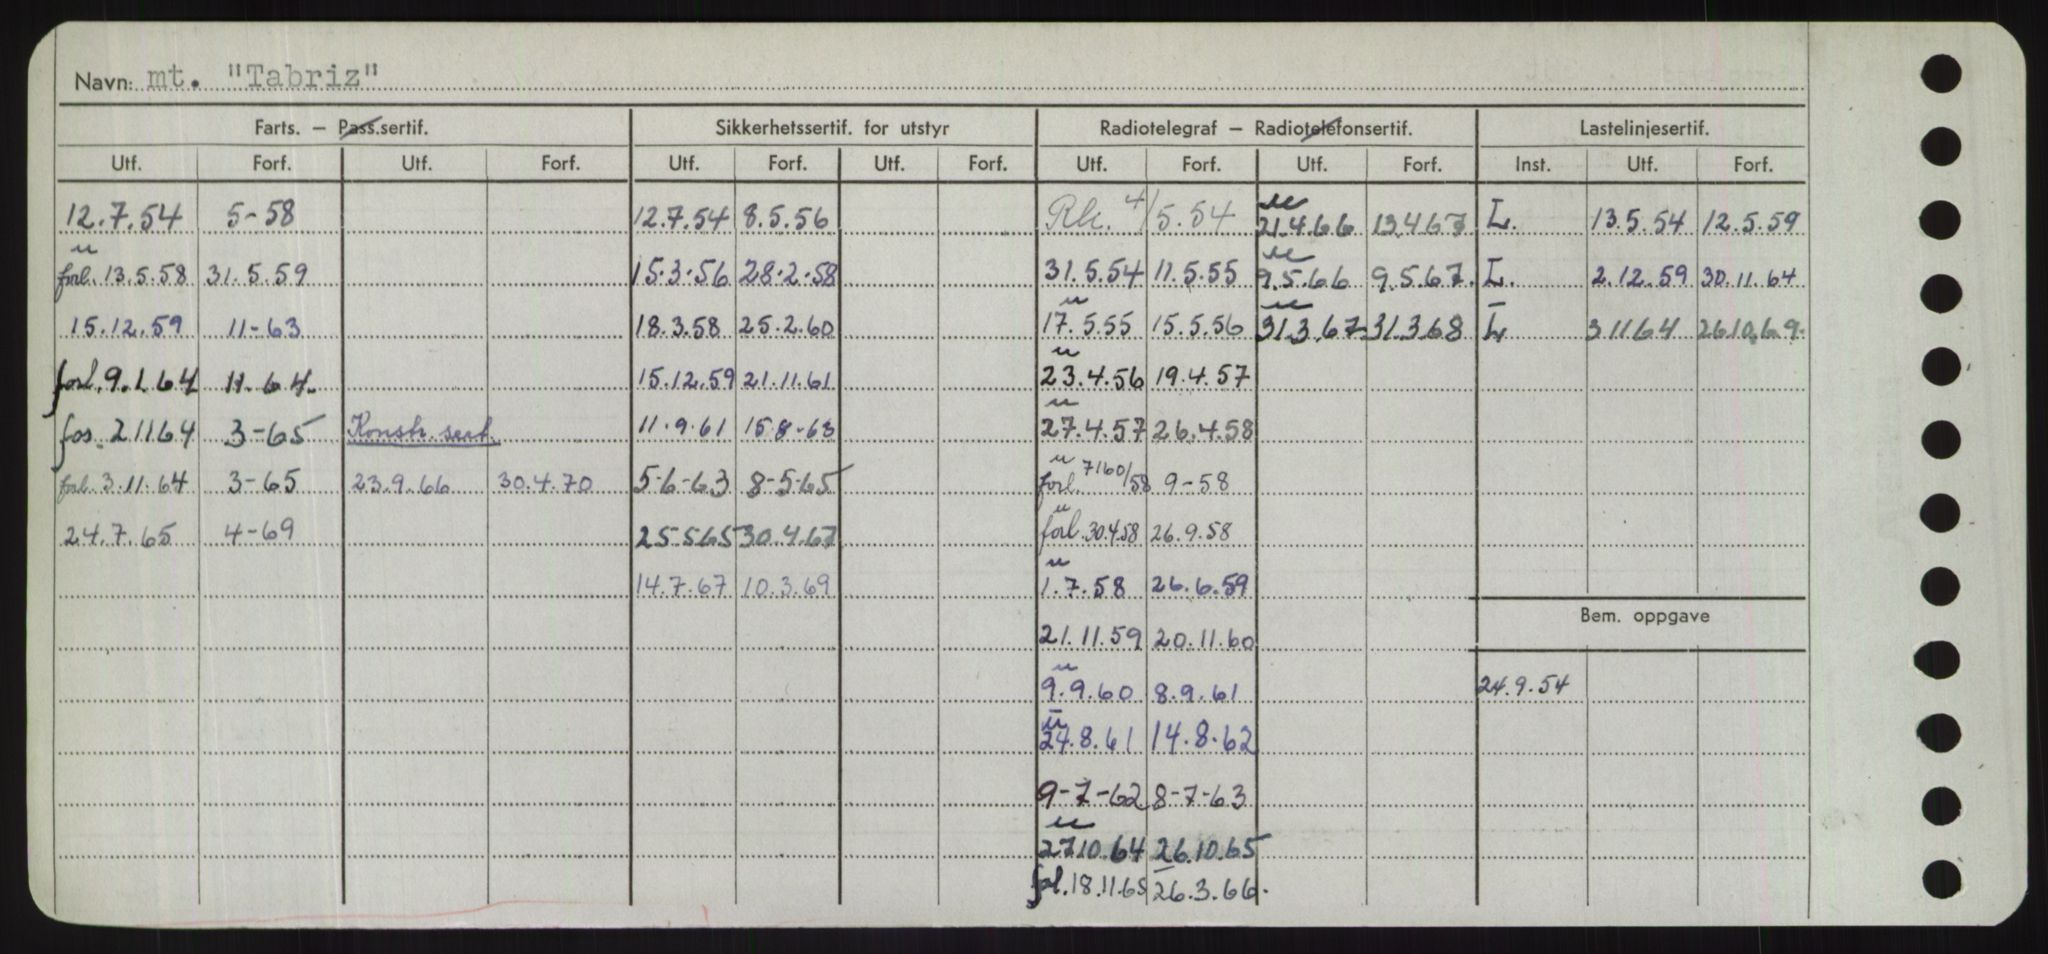 Navn: mt. "Tabriz"
Farts. — Pass.sertif. Sikkerhetssertif. for utstyr Radiotelegraf — Radiotelefonsertif. Lastelinjesertif.
Utf. Forf. Utf. Forf. Utf. Forf. Utf. Forf. Utf. Forf. Utf. Forf. Inst. Utf. Forf.
12.7.54 5-58 12.7.54 8.5.56 Rk. 4/5.54 u 21.4.66 13.4.67 L. 13.5.54 12.5.59
u forl. 13.5.58 31.5.59 15.3.56 28.2.58 31.5.54 11.5.55 u 9.5.66 9.5.67. L. 2.12.59 30.11.64
15.12.59 11-63 18.3.58 25.2.60 u 17.5.55 15.5.56 u 31.3.67 31.3.68 L 3.11.64 26.10.69.
forl. 9.1.64 11.64. 15.12.59 21.11.61 u 23.4.56 19.4.57
2.11.64 3-65 Konstr. sert. 11.9.61 15.8-63 u 27.4.57 26.4.58
forl. 3.11.64 3-65 23.9.66 30.4.70 5-6-63 8-5-65 u forl. 7160/58 9-58
24.7.65 4-69 25.5.65 30.4.67 u forl. 30.4.58 26.9.58
14.7.67 10.3.69 u 1.7.58 26.6.59
Bem. oppgave
21.11.59 20.11.60
u 9.9.60 8.9.61 24.9.54
u 8.61 14.8.62
9-7-62 8-7-63
u 27.10.64 26.10.65
18.11.65 26.3.66.